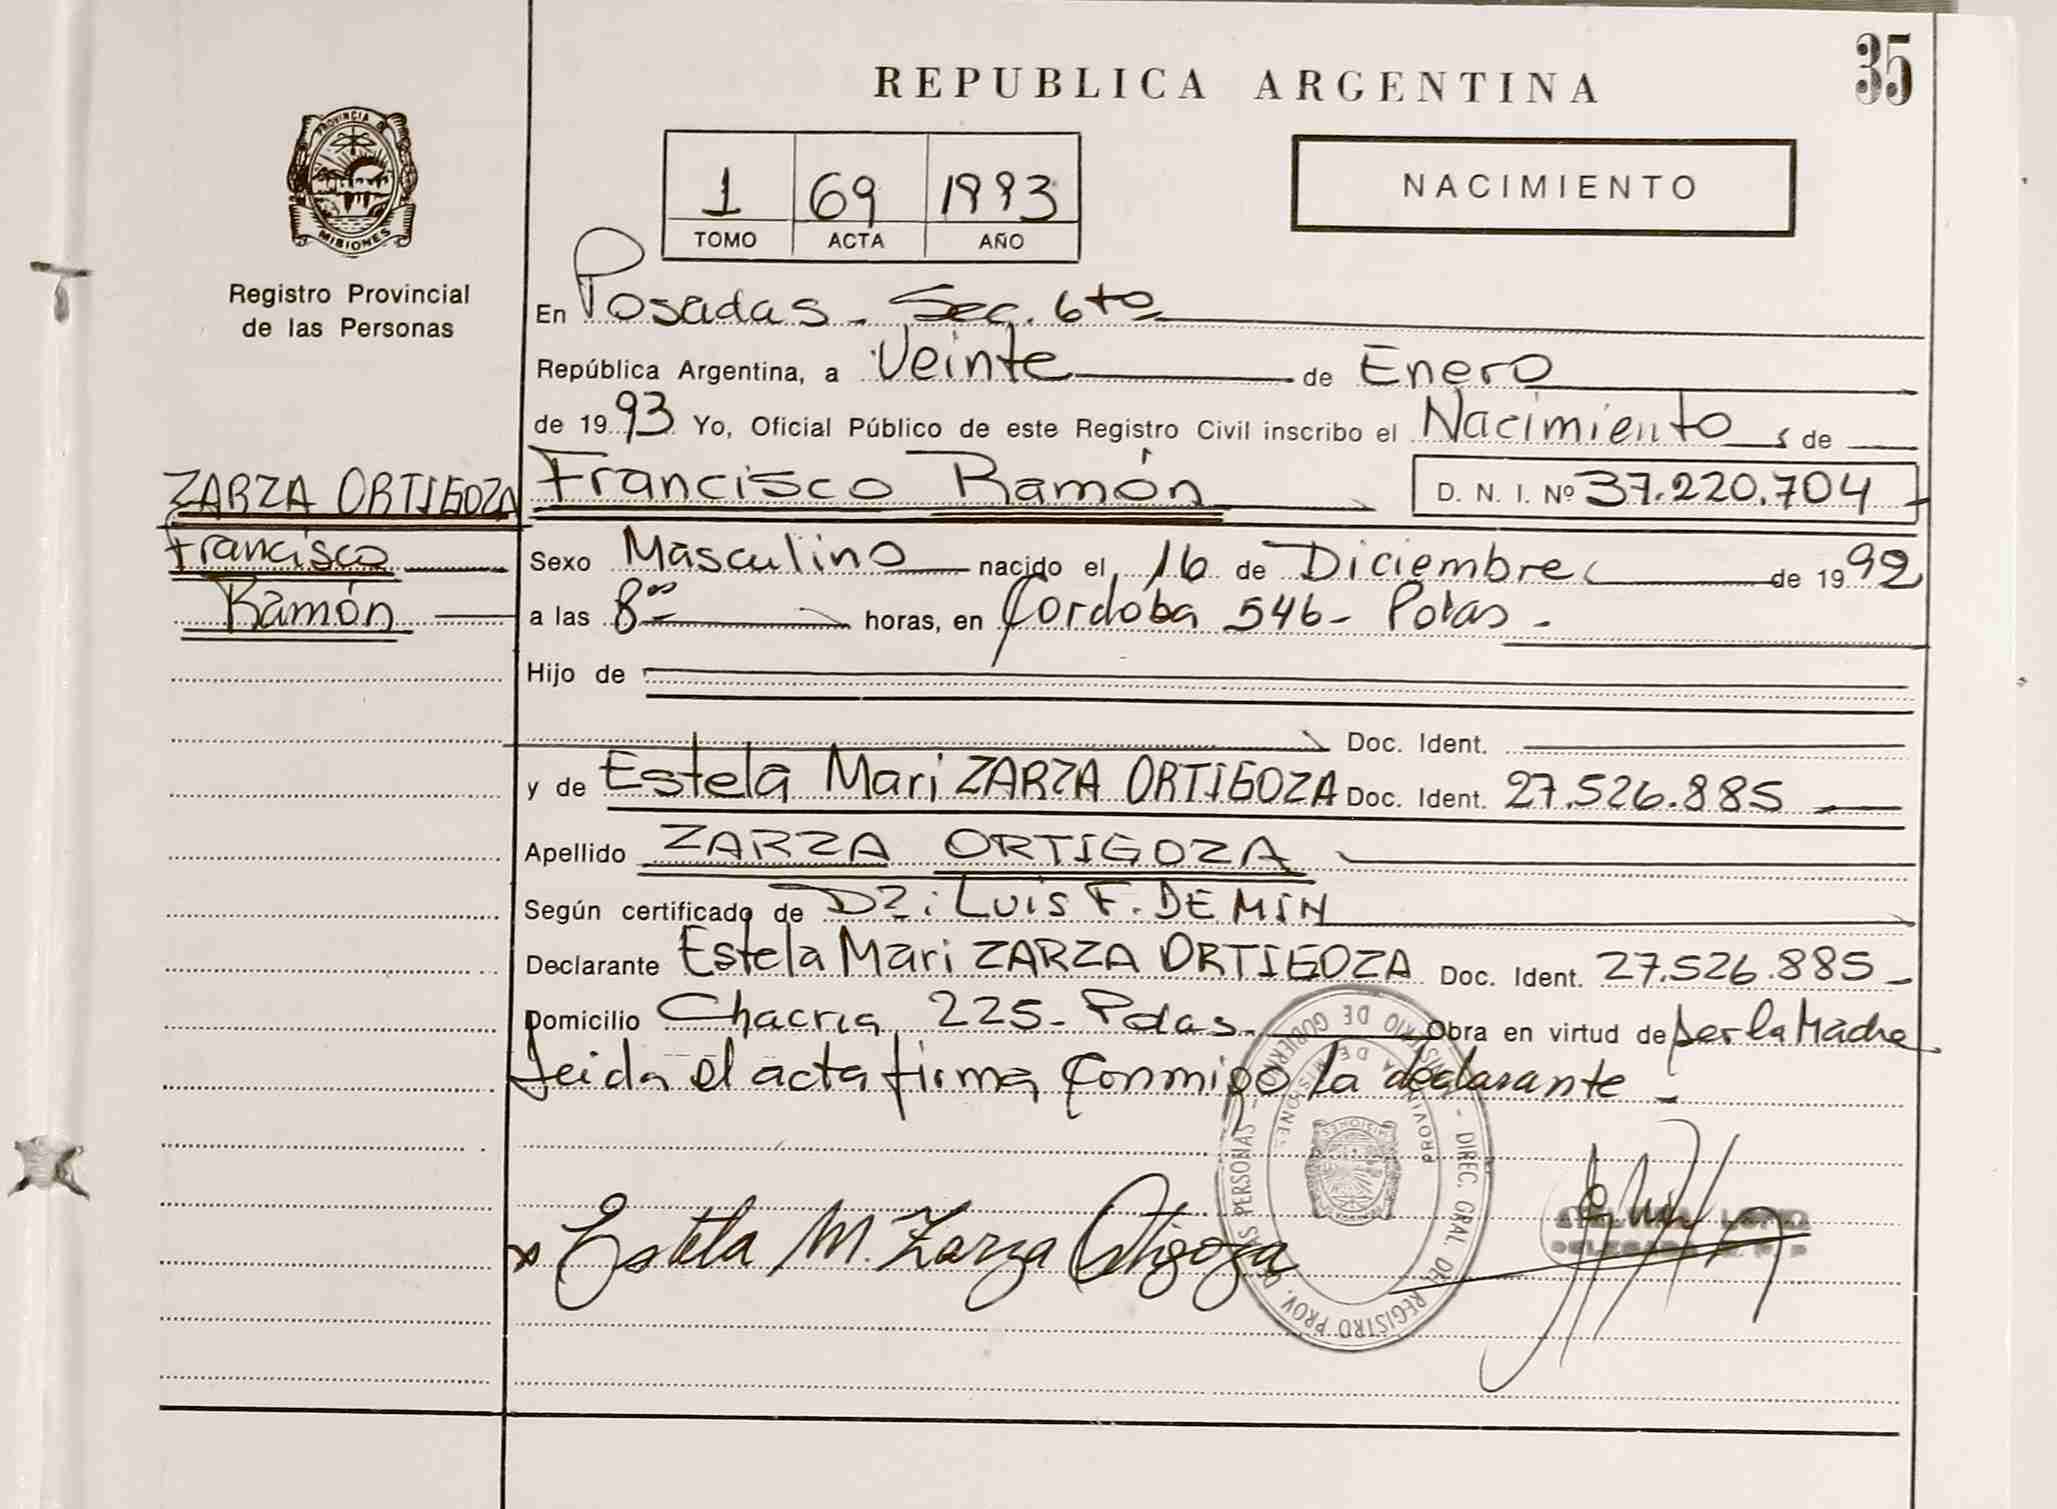 35
REPUBLICA ARGENTINA
PROVINCIA DE
MISIONES
Registro Provincial
de las Personas
1 69 1993
TOMO ACTA AÑO
NACIMIENTO
En Posadas - Sec. 6ta
República Argentina, a Veinte de Enero
de 1993 Yo, Oficial Público de este Registro Civil inscribo el Nacimiento de
ZARZA ORTIGOZA
Francisco
Ramón
Francisco Ramón D. N. I. Nº 37.220.704
Sexo Masculino nacido el 16 de Diciembre de 1992
a las 8ºº horas, en Cordoba 546 - Pdas -
Hijo de
Doc. Ident.
y de Estela Mari ZARZA ORTIGOZA Doc. Ident. 27.526.885
Apellido ZARZA ORTIGOZA
Según certificado de Dr: LUIS F. DEMIN
Declarante Estela Mari ZARZA ORTIGOZA Doc. Ident. 27.526.885 -
Domicilio Chacra 225 - Pdas - Obra en virtud de ser la Madre
Leida el acta firma conmigo la declarante -
MINISTERIO DE GOBIERNO - DIREC. GRAL. DEL REGISTRO PROV. DE LAS PERSONAS -
PROVINCIA DE MISIONES
x Estela M. Zarza Ortigoza